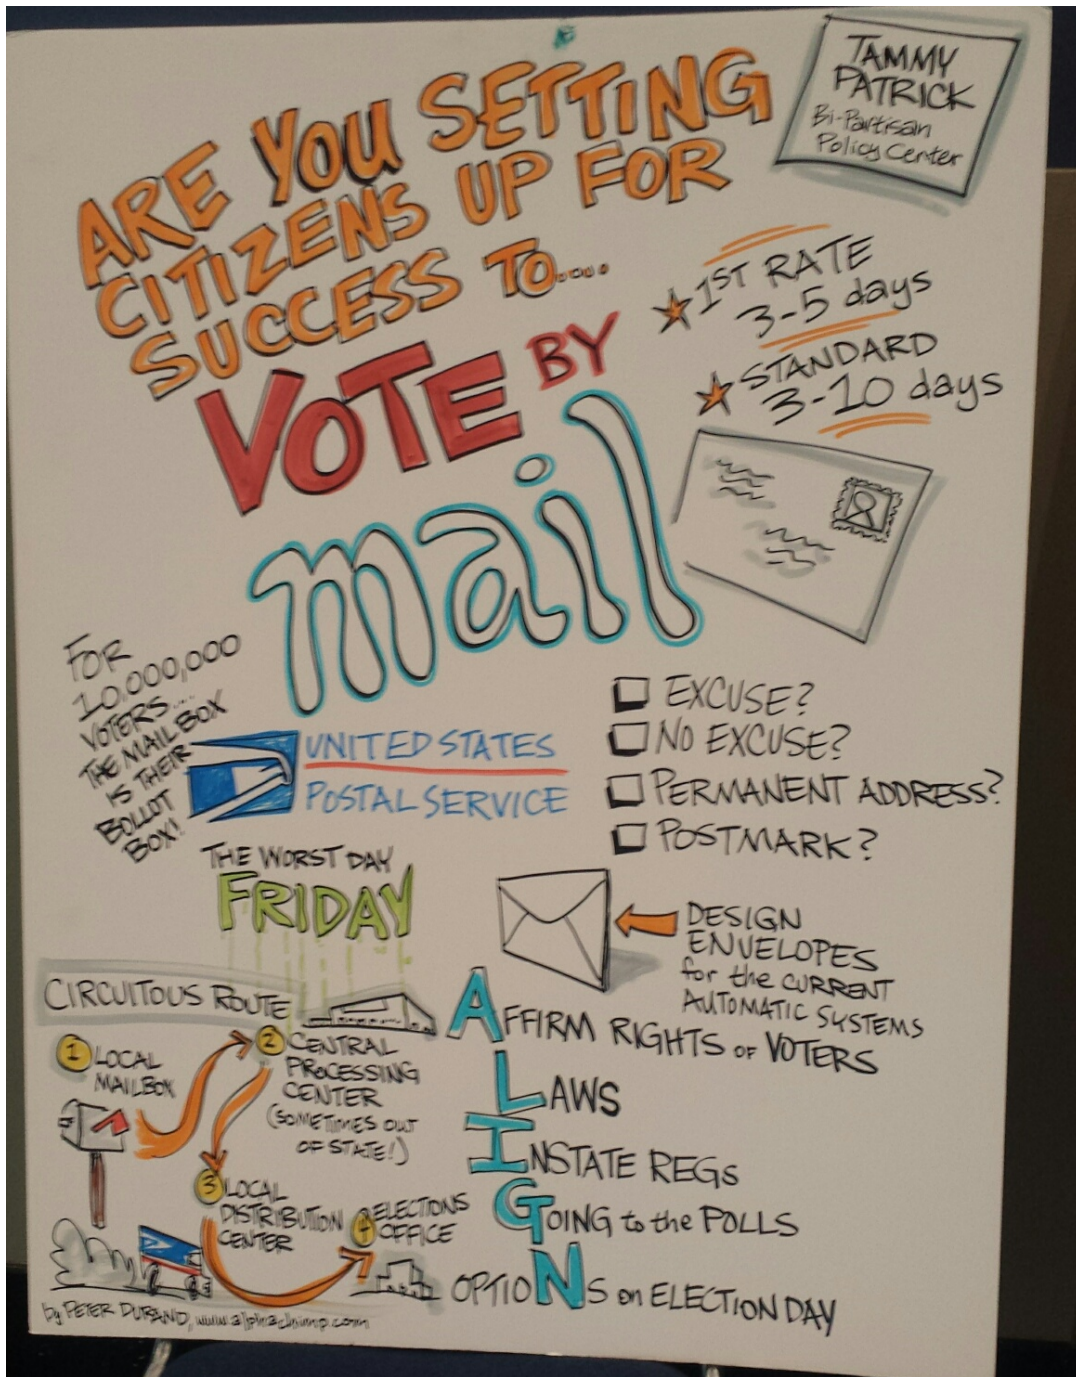 TAMMY
PATRICK
Bi-Partisan
Policy Center
ARE YOU SETTING
CITIZENS UP FOR
SUCCESS TO....
VOTE BY
mail
1ST RATE
3-5 days
STANDARD
3-10 days
FOR
10,000,000
VOTERS...
THE MAIL BOX
IS THEIR
BOLLOT
BOX!
UNITED STATES
POSTAL SERVICE
EXCUSE?
NO EXCUSE?
PERMANENT ADDRESS?
POSTMARK?
THE WORST DAY
FRIDAY
DESIGN
ENVELOPES
for the CURRENT
AUTOMATIC SYSTEMS
CIRCUITOUS ROUTE
1 LOCAL
MAILBOX
2 CENTRAL
PROCESSING
CENTER
(SOMETIMES OUT
OF STATE!)
3 LOCAL
DISTRIBUTION
CENTER
4 ELECTIONS
OFFICE
AFFIRM RIGHTS OF VOTERS
LAWS
INSTATE REGS
GOING to the POLLS
OPTIONS on ELECTION DAY
by PETER DURAND, www.alphachimp.com